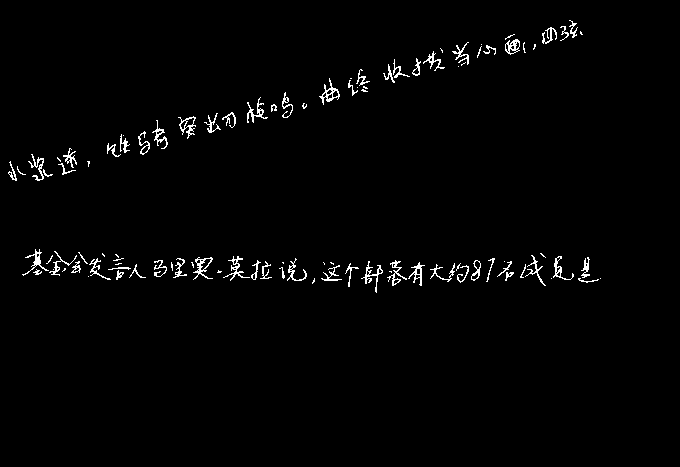 水浆迸，铁骑突出刀枪鸣。曲终收拨当心画，四弦
基金会发言人马里奥·莫拉说，这个部落有大约87名成员是